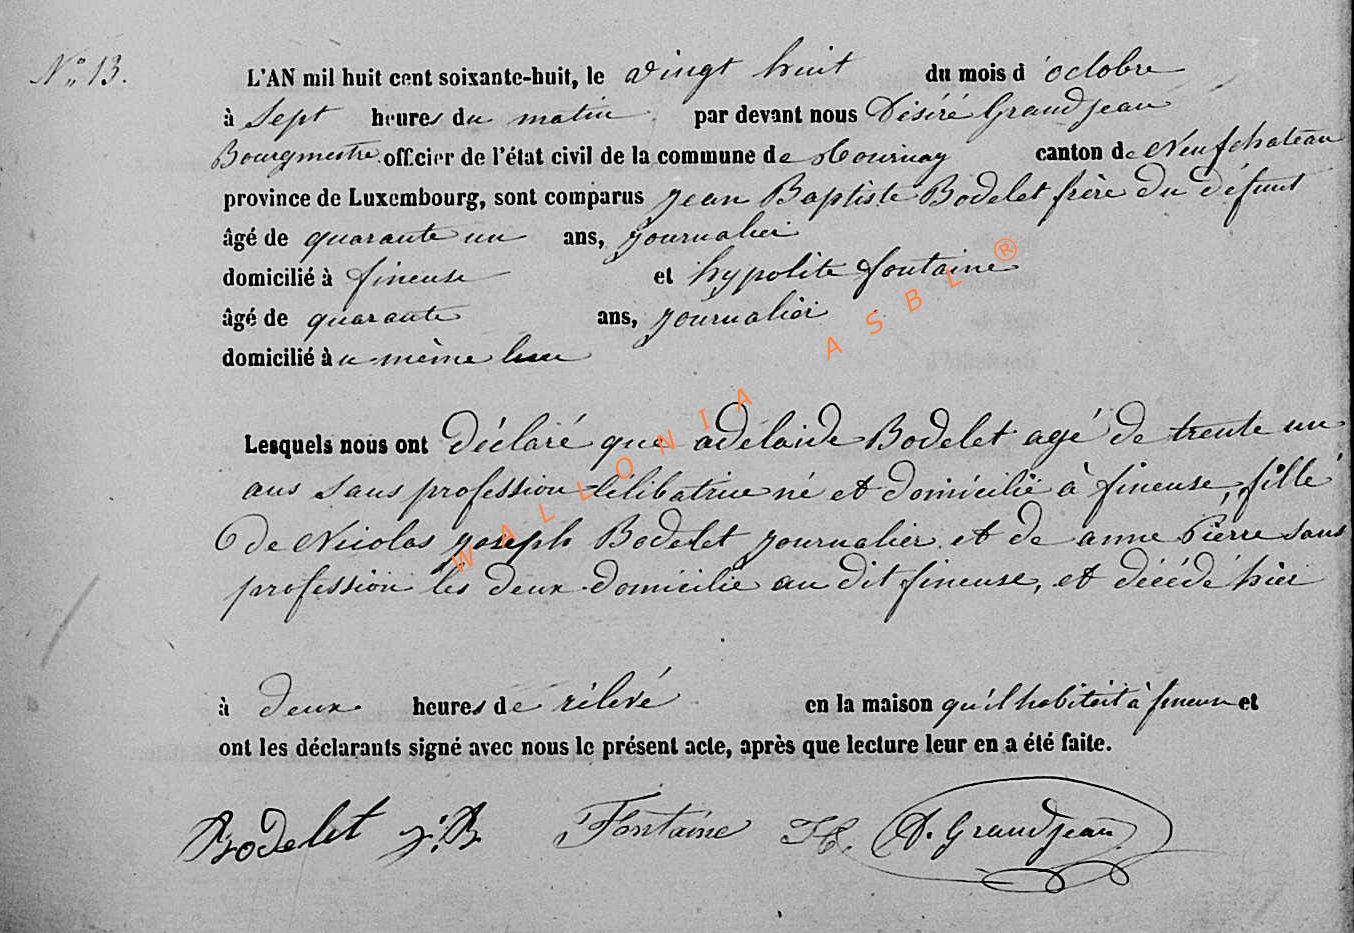 N° 13.
L'AN mil huit cent soixante-huit, le vingt huit du mois d'octobre
à Sept heures du matin par devant nous Désiré Grandjean
Bourgmestre officier de l'état civil de la commune de Tournay canton de Neufchateau
province de Luxembourg, sont comparus jean Baptiste Bodelet frère du défunt
âgé de quarante un ans, journalier
domicilié à fineuse et hypolite fontaine
âgé de quarante ans, journalier
domicilié à u même lieu
Lesquels nous ont déclaré que adélaide Bodelet agé de trente un
ans sans profession célibatrice né et domicilié à fineuse, fille
de Nicolas joseph Bodelet journalier et de anne Pierre sans
profession les deux domicilié au dit fineuse, et décédé hier
à deux heures de rélevé en la maison qu'il habitait à fineuse et
ont les déclarants signé avec nous le présent acte, après que lecture leur en a été faite.
Bodelet j. B Fontaine H. D. Grandjean
WALLONIA ASBL ®